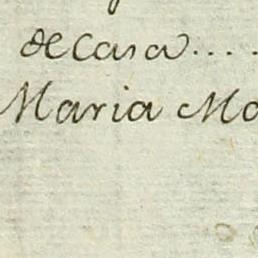 de casa....
Maria Mo